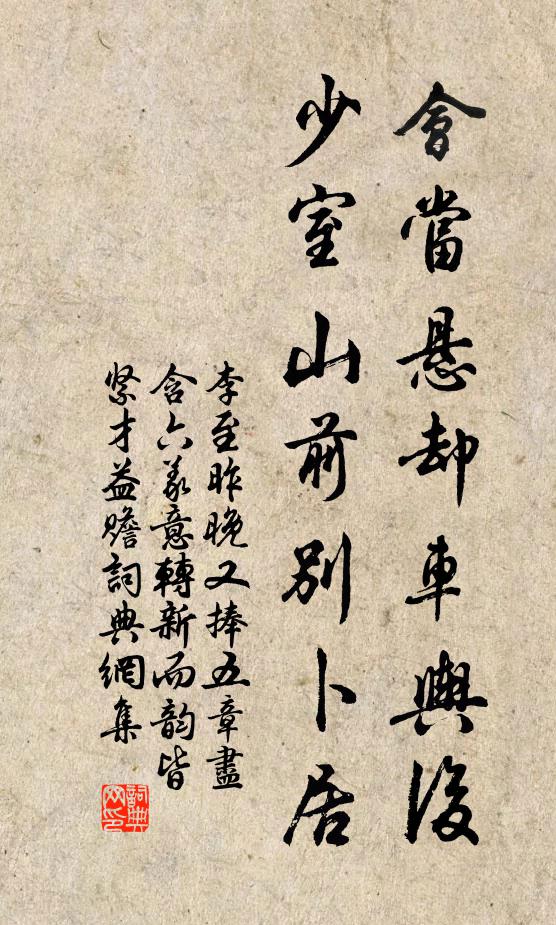 會當懸却車輿後
少室山前別卜居
李至昨晚又捧五章盡
含六義意轉新而韵皆
緊才益贍詞典網集
詞典
网印